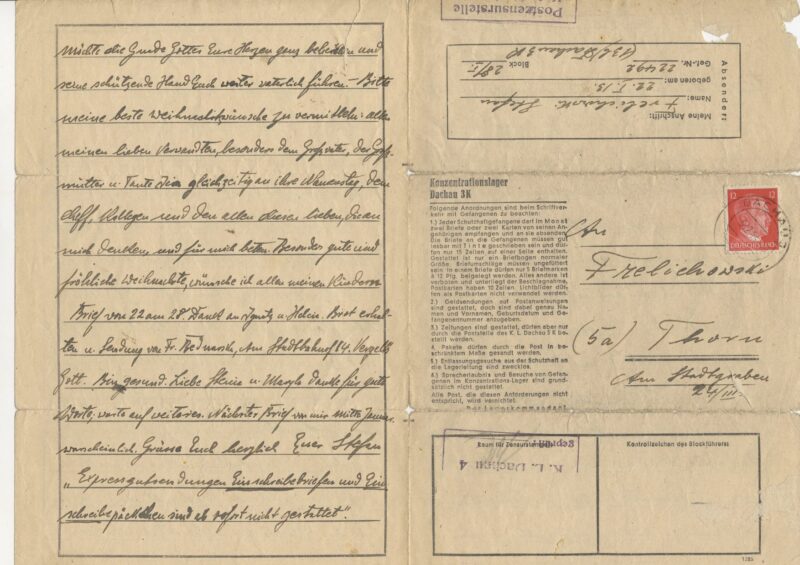 möchte die Gnade Gottes Eure Herzen ganz beleuchten und
seine schützende Hand Euch weiter väterlich führen. – Bitte
meine beste Weihnachtswünsche zu vermitteln: allen
meinen lieben Verwandten, besonders dem Großvater, der Groß-
mutter u. Tante gleichzeitig an ihre Namenstag, dem
Cheff, Kollegen und den allen diesen lieben, die an
mich denken, und für mich beten. Besonders gute und
fröhliche Weihnachte, wünsche ich allen meinen Kindern
Brief von 22 am 28. Dankt an Ignatz u. Helen. Brot erhal-
ten u. Sendung von Fr. Bednarska, Am Stadtbahnhof 14. Vergelts
Gott. Bin gesund. Liebe Stenia u. Maryla danke für gute
Worte, warte auf weiteres. Nächster Brief von mir mitte Januar
warscheinlich. Grüsse Euch herzlich Euer Stefan
„Expressgutsendungen Einschreibebriefen und Ein-
schreibepäckchen sind ab sofort nicht gestattet".
Postzensurstelle
Absender:
Meine Anschrift:
Name: Frelichowski Stefan
geboren am: 22. I. 13.
Gef.-Nr. 22492 Block 28/I.
Dachau 3K
Konzentrationslager
Dachau 3K
Folgende Anordnungen sind beim Schriftver-
kehr mit Gefangenen zu beachten:
1.) Jeder Schutzhaftgefangene darf im Monat
zwei Briefe oder zwei Karten von seinen An-
gehörigen empfangen und an sie absenden.
Die Briefe an die Gefangenen müssen gut
lesbar mit Tinte geschrieben sein und dür-
fen nur 15 Zeilen auf einer Seite enthalten.
Gestattet ist nur ein Briefbogen normaler
Größe. Briefumschläge müssen ungefüttert
sein. In einem Briefe dürfen nur 5 Briefmarken
à 12 Pfg. beigelegt werden. Alles andere ist
verboten und unterliegt der Beschlagnahme.
Postkarten haben 10 Zeilen. Lichtbilder dür-
fen als Postkarten nicht verwendet werden.
2.) Geldsendungen auf Postanweisungen
sind gestattet, doch sind dabei genau Na-
men und Vornamen, Geburtsdatum und Ge-
fangenennummer anzugeben.
3.) Zeitungen sind gestattet, dürfen aber nur
durch die Poststelle des K. L. Dachau 3 K be-
stellt werden.
4. Pakete dürfen durch die Post in be-
schränktem Maße gesandt werden.
5.) Entlassungsgesuche aus der Schutzhaft an
die Lagerleitung sind zwecklos.
6.) Sprecherlaubnis und Besuche von Gefan-
genen im Konzentrations-Lager sind grund-
sätzlich nicht gestattet.
Alle Post, die diesen Anforderungen nicht
entspricht, wird vernichtet.
Der Lagerkommandant
12 12
DEUTSCHES REICH
DACHAU
An
Frelichowski
(5a) Thorn
Am Stadtgraben
24/III.
Raum für Zensurstempel:
Kontrollzeichen des Blockführers:
K. L. Dachau 4
Geprüft
1285